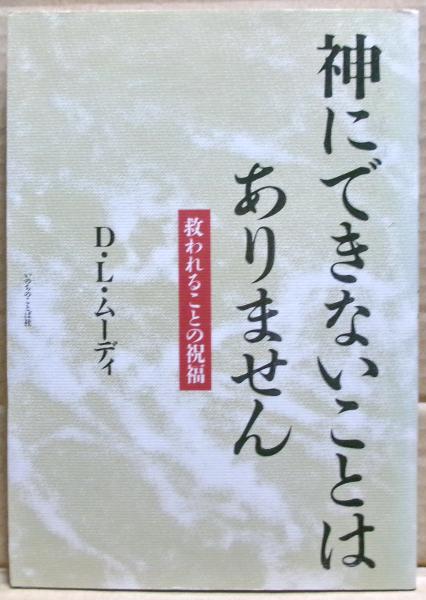 神にできないことは
ありません
救われることの祝福
D・L・ムーディ
いのちのことば社